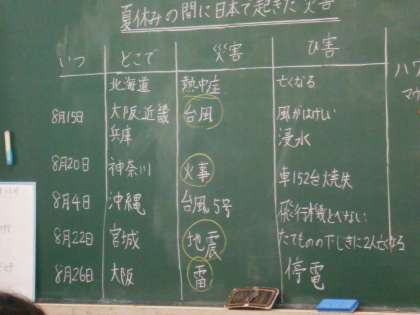 夏休みの間に日本で起きた災害
いつ どこで 災害 ひ害
北海道 熱中症 亡くなる
8月15日 大阪 近畿 台風 風がはげしい
兵庫 浸水
8月20日 神奈川 火事 車152台焼失
8月4日 沖縄 台風5号 飛行機とべない
8月22日 宮城 地震 たてものの下じきに2人亡くなる
8月26日 大阪 雷 停電
ハワ
マウ